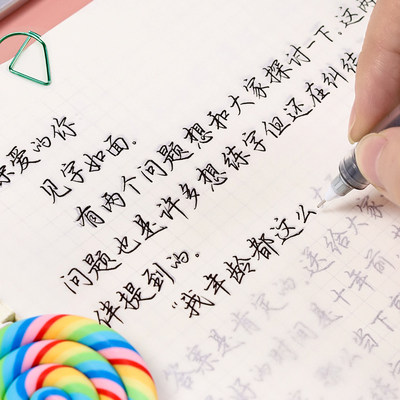 亲爱的你
见字如面。
有两个问题想和大家探讨一下,这两
问题也是许多想练字但还在纠结
伴提到的。
“我年龄都这么
答案是肯定的,送给大家
好的时间是十年前,
当下